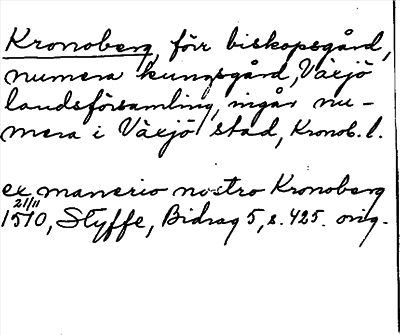 Kronoberg, förr biskopsgård,
numera kungsgård, Växjö
landsförsamling, ingår nu-
mera i Växjö stad, Kronob. l.
ex manerio nostro Kronoberg
21/11
1510, Styffe, Bidrag 5, s. 425. orig.